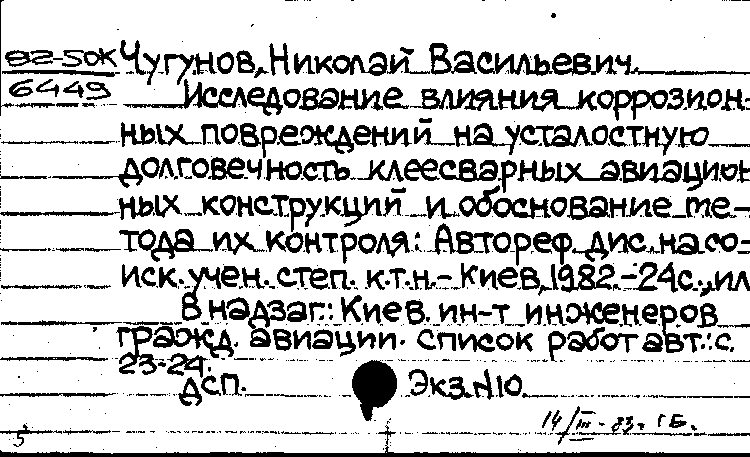 82-5ДК Чугунов, Николай Васильевич.
6449 Исследование влияния коррозион-
ных повреждений на усталостную
долговечность клеесварных авиацион
ных конструкций и обоснование ме-
тода их контроля: Автореф. дис. на со-
иск. учен. степ. к.т.н. - Киев, 1982. - 24с., ил
В надзаг.: Киев. ин-т инженеров
гражд. авиации. Список работ авт.: с.
23-24.
ДСП. Экз. №10.
14/III - 83. ГБ.
5